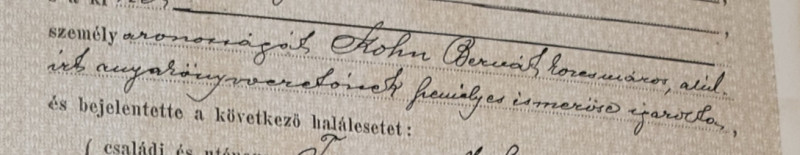 s a ki
személy azonosságát Kohn Bernát korcsmáros, alúl-
írt anyakönyvvezetőnek személyes ismerőse igazolta,
és bejelentette a következő halálesetet:
( családi és utóne